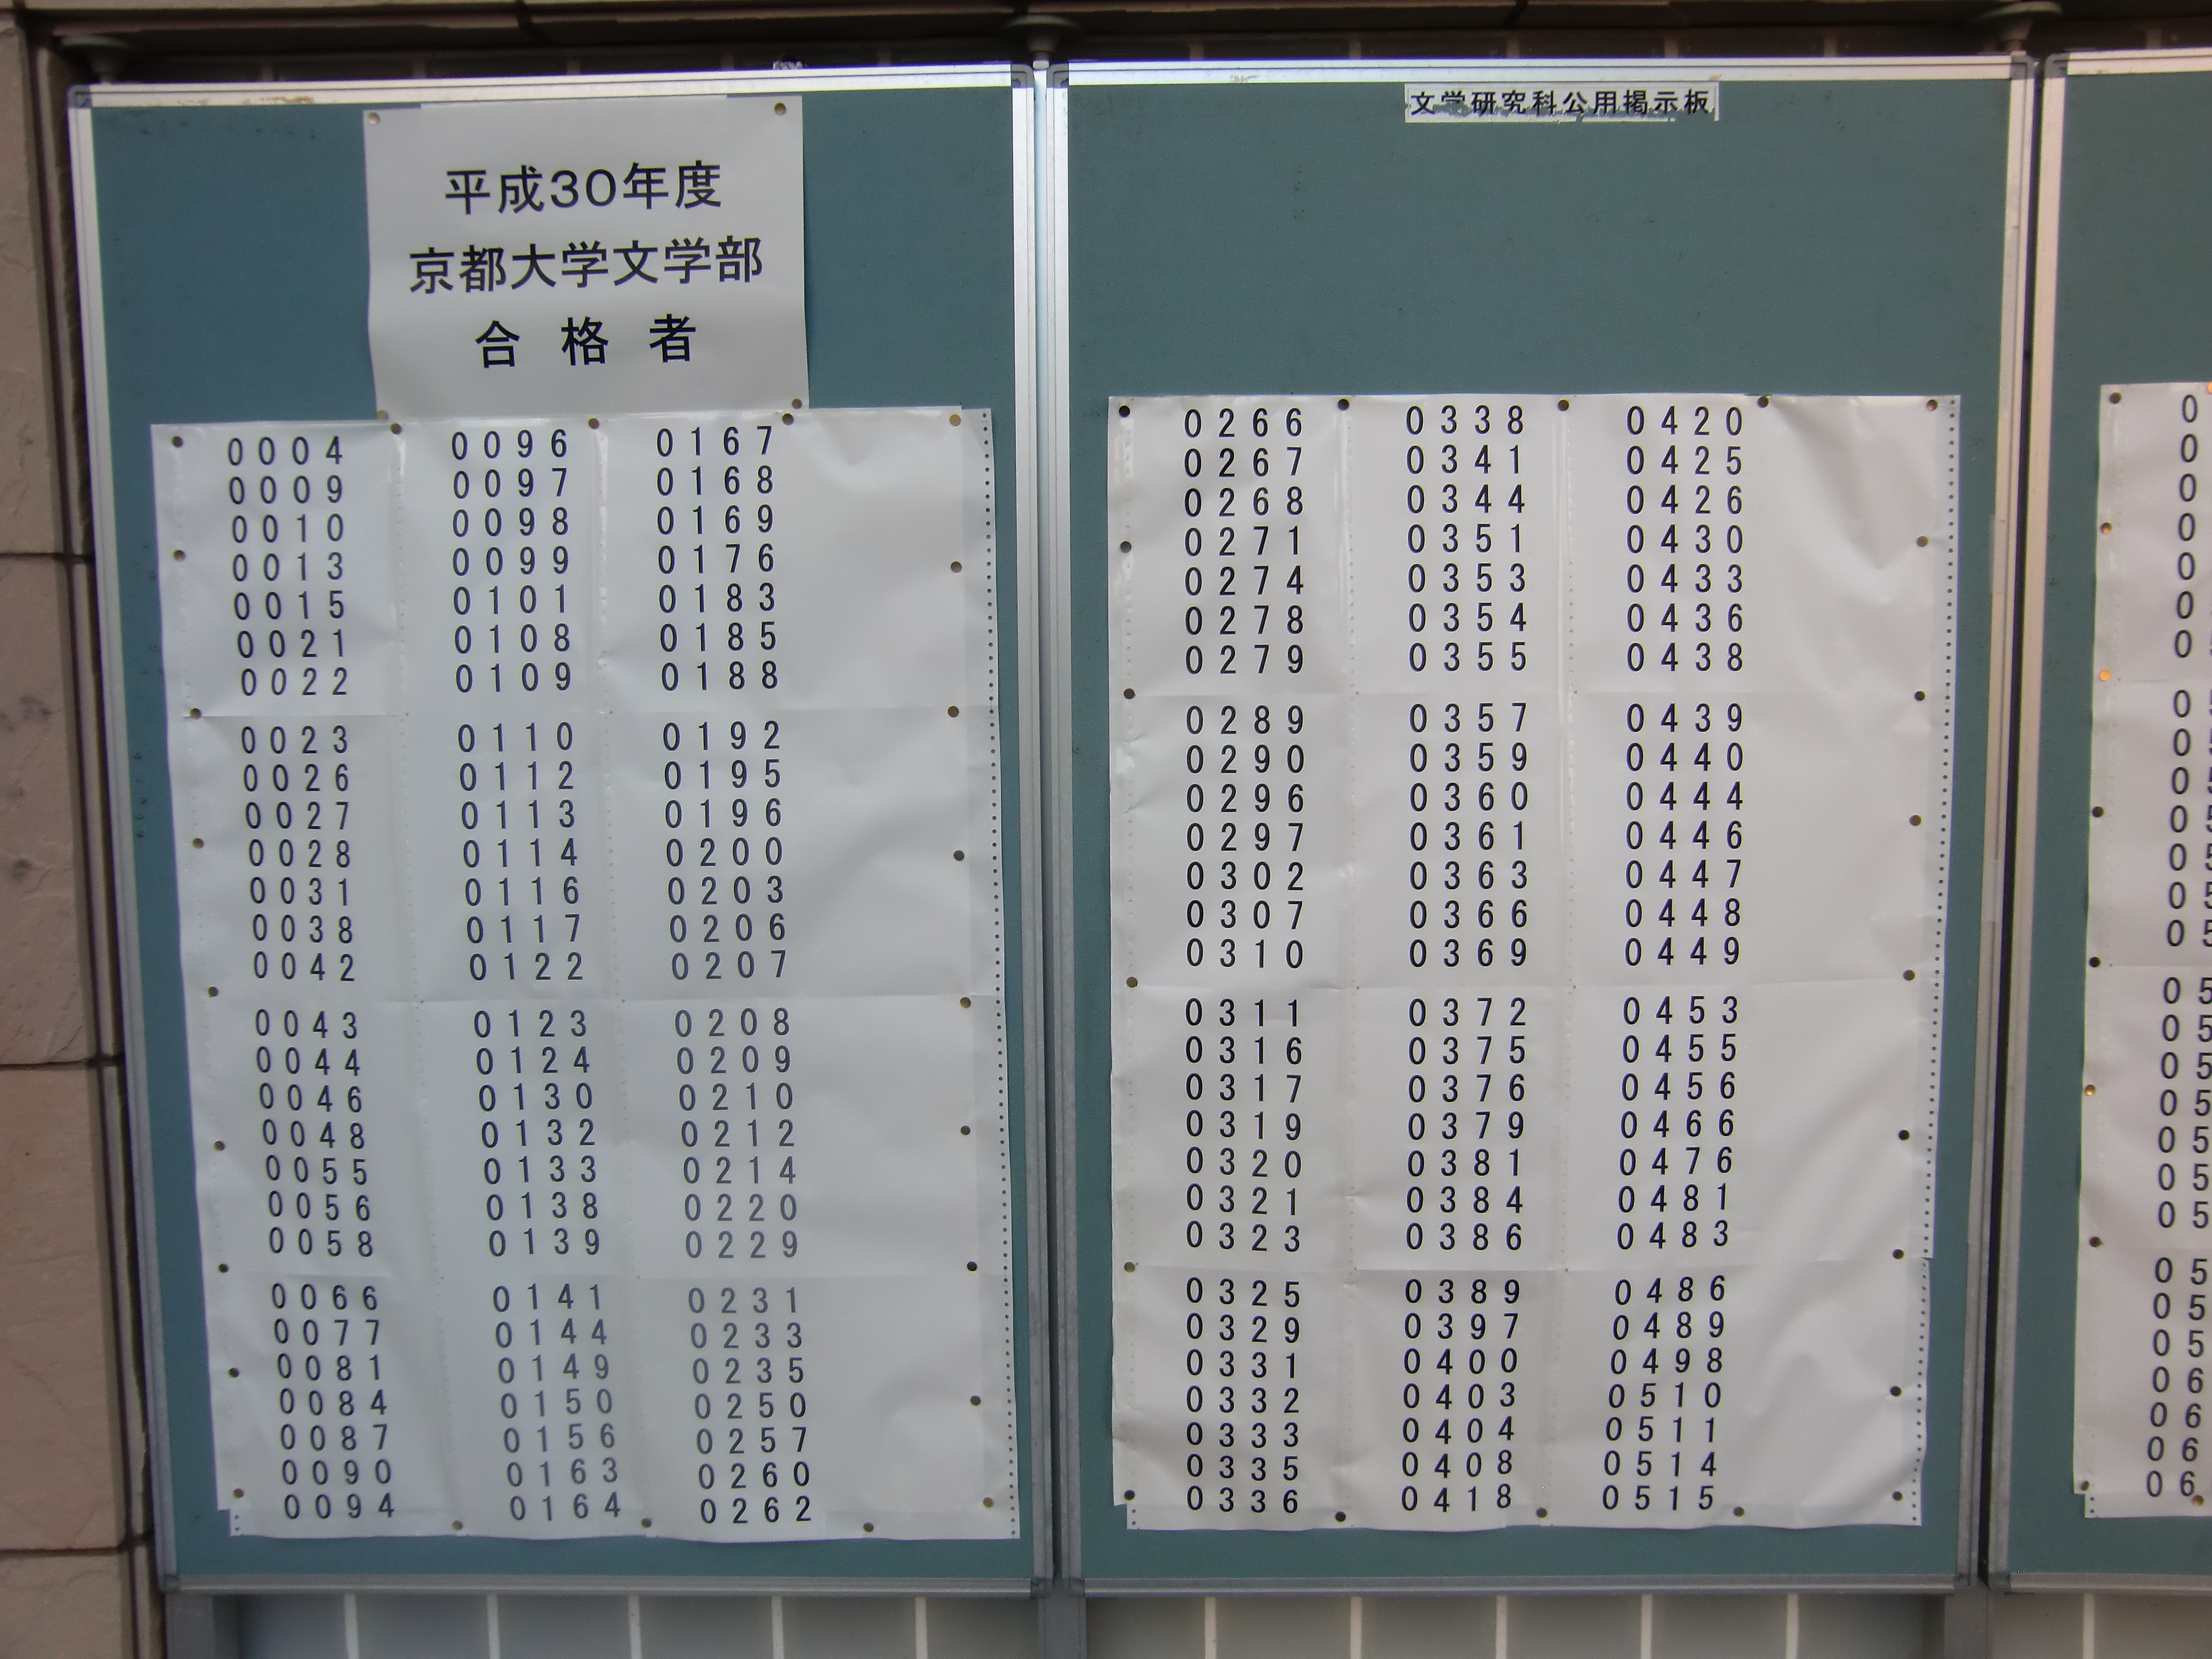 平成30年度
京都大学文学部
合格者
0004
0009
0010
0013
0015
0021
0022
0023
0026
0027
0028
0031
0038
0042
0043
0044
0046
0048
0055
0056
0058
0066
0077
0081
0084
0087
0090
0094
0096
0097
0098
0099
0101
0108
0109
0110
0112
0113
0114
0116
0117
0122
0123
0124
0130
0132
0133
0138
0139
0141
0144
0149
0150
0156
0163
0164
0167
0168
0169
0176
0183
0185
0188
0192
0195
0196
0200
0203
0206
0207
0208
0209
0210
0212
0214
0220
0229
0231
0233
0235
0250
0257
0260
0262
文学研究科公用掲示板
0266
0267
0268
0271
0274
0278
0279
0289
0290
0296
0297
0302
0307
0310
0311
0316
0317
0319
0320
0321
0323
0325
0329
0331
0332
0333
0335
0336
0338
0341
0344
0351
0353
0354
0355
0357
0359
0360
0361
0363
0366
0369
0372
0375
0376
0379
0381
0384
0386
0389
0397
0400
0403
0404
0408
0418
0420
0425
0426
0430
0433
0436
0438
0439
0440
0444
0446
0447
0448
0449
0453
0455
0456
0466
0476
0481
0483
0486
0489
0498
0510
0511
0514
0515